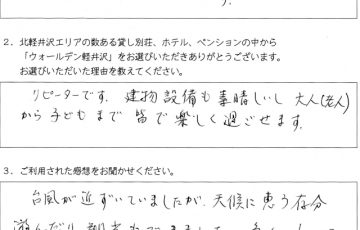 2．北軽井沢エリアの数ある貸し別荘、ホテル、ペンションの中から
「ウォールデン軽井沢」をお選びいただきありがとうございます。
お選びいただいた理由を教えてください。
リピーターです。建物設備も素晴しいし 大人(老人)
から子どもまで 皆で楽しく過ごせます。
3．ご利用された感想をお聞かせください。
台風が近ずいていましたが、天候に恵う存分